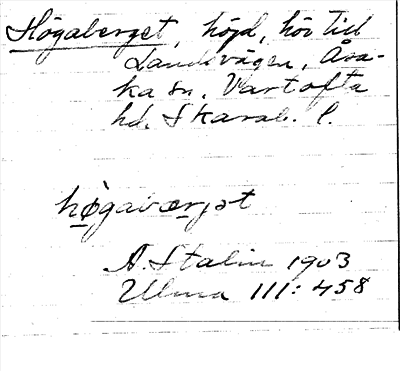 Högaberget, höjd, hör till
Landsvägen, Åsa-
ka sn. Vartofta
hd. Skarab. l.
högabærjət
A. Stalin 1903
Ulma 111: 458